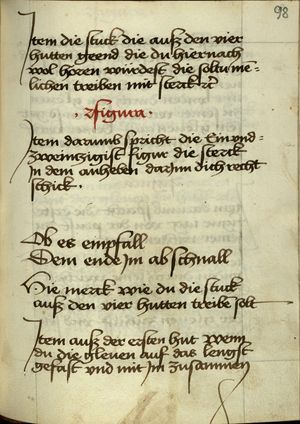 98
Jtem die stuck die auß den vier
hutten geend die du hiernach
wol horen würdest die soltu me⸗
lichen treiben mit sterck rc
· figura ·
Jtem darumb spricht die Ein vnd⸗
zweinzigist figur die sterck
In dem anheben darjm dich recht
schick ·
Ob es empfall
Dem ende Jm ab schnall
Hie merck wie du die stuck
auß den vier hutten treibe solt
Jtem auß der ersten hut wenn
du die gleuen auf das lengst
gefast vnd mit Jm zusammen